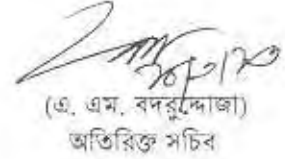 (এ, এম, বদরুদ্দোজা)
অতিরিক্ত সচিব